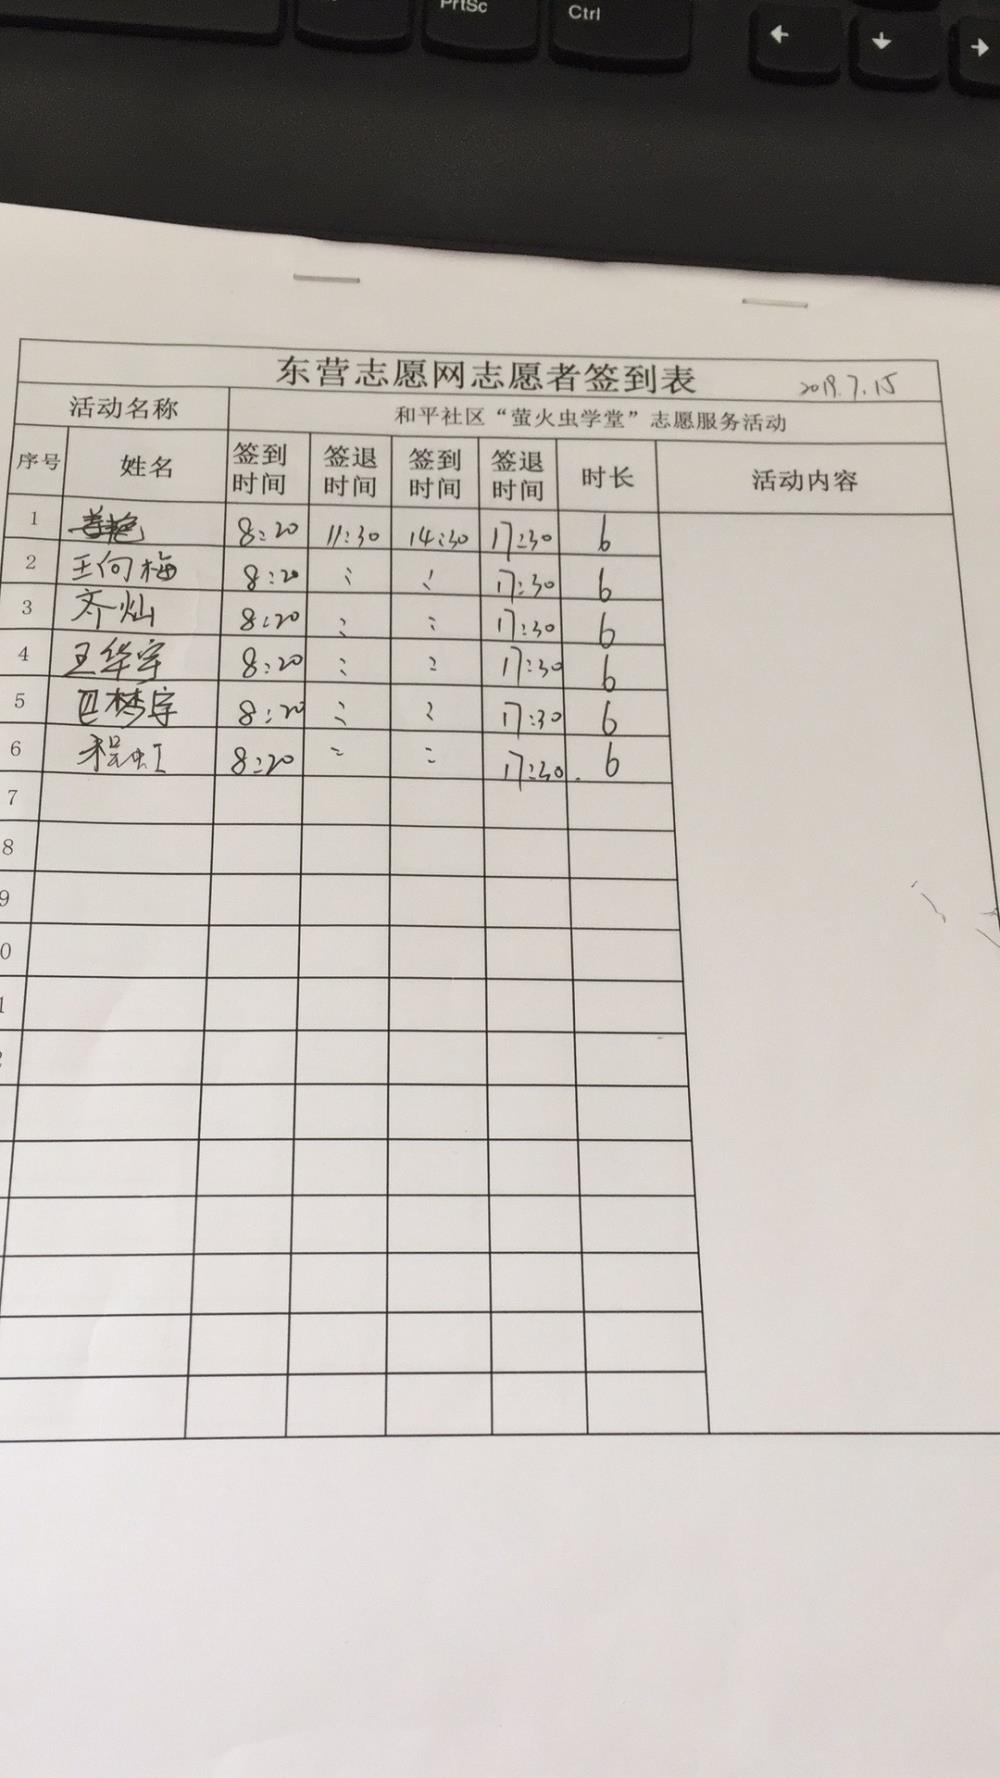 PrtSc
Ctrl
← ↓ →
东营志愿网志愿者签到表 2019.7.15
活动名称 和平社区“萤火虫学堂”志愿服务活动
序号 姓名 签到时间 签退时间 签到时间 签退时间 时长 活动内容
1 8:20 11:30 14:30 17:30 6
2 王何梅 8:20 : : 17:30 6
3 齐灿 8:20 : : 17:30 6
4 王华宇 8:20 : : 17:30 6
5 巴梦宇 8:20 : : 17:30 6
6 程虹 8:20 : : 17:30. 6
7
8
9
0
1
2